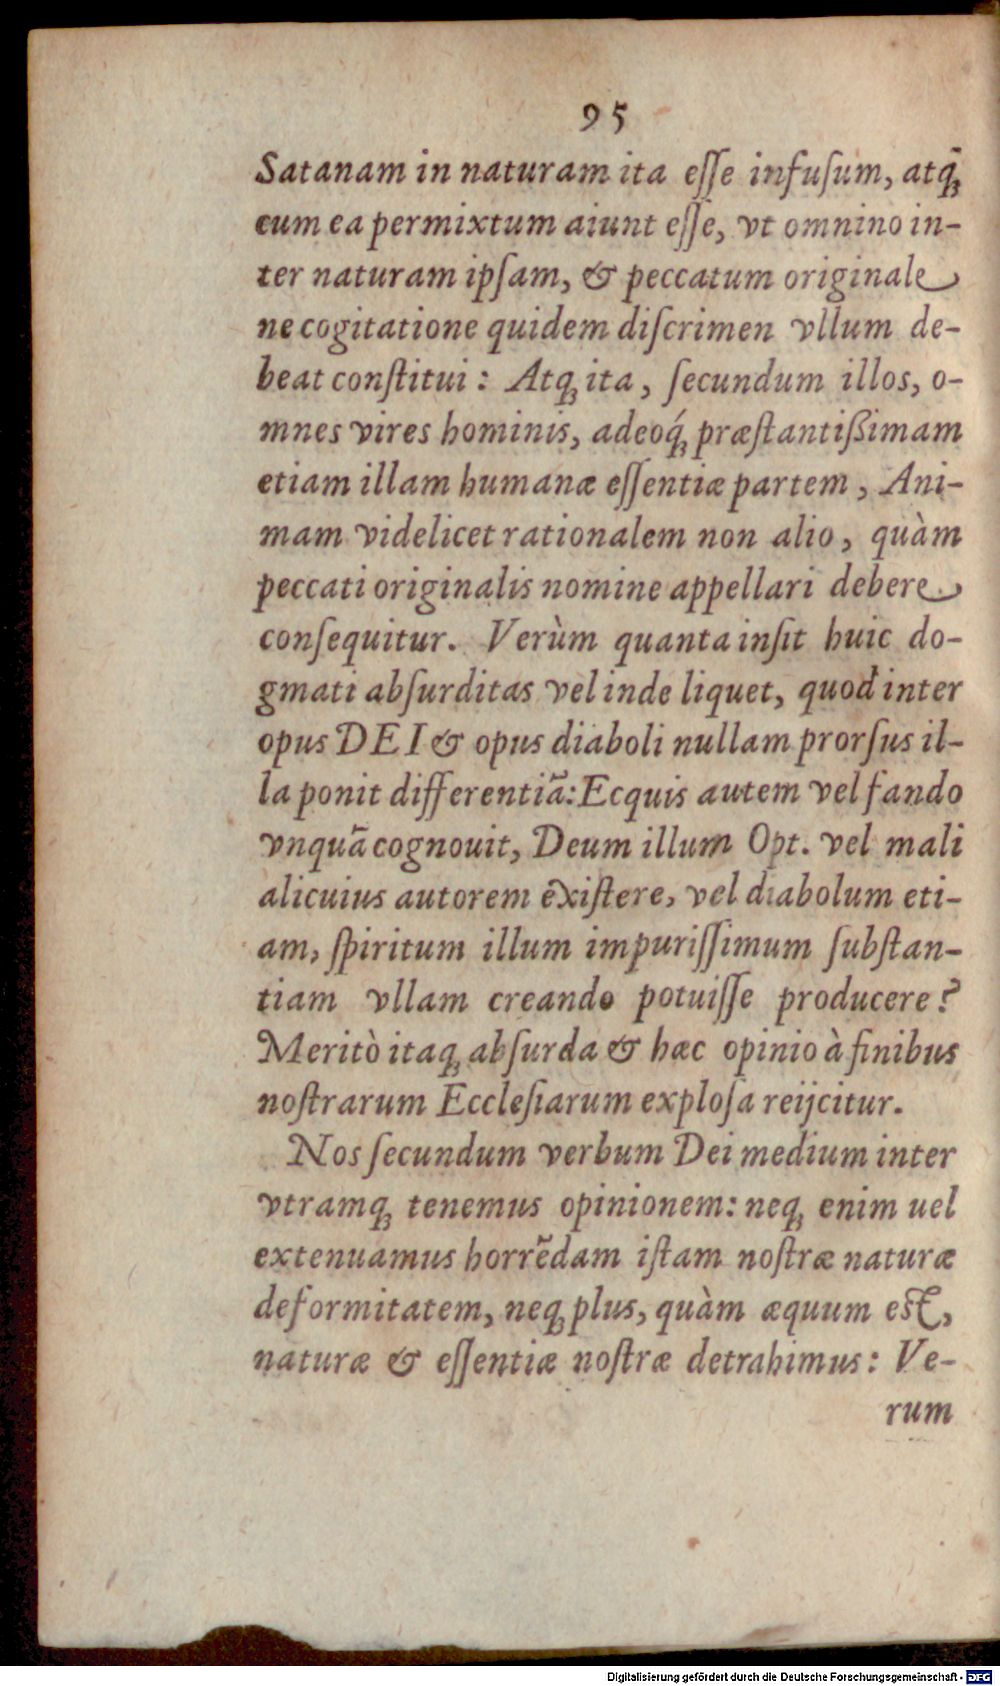 95
Satanam in naturam ita eſſe infuſum, atq́ꝫ
cum ea permixtum aiunt eſſe, vt omnino in-
ter naturam ipſam, & peccatum originale
ne cogitatione quidem diſcrimen vllum de-
beat conſtitui: Atqꝫ ita, ſecundum illos, o-
mnes vires hominis, adeoq́ꝫ præſtantißimam
etiam illam humanæ eſſentiæ partem, Ani-
mam videlicet rationalem non alio, quàm
peccati originalis nomine appellari debere
conſequitur. Verùm quanta inſit huic do-
gmati abſurditas vel inde liquet, quod inter
opus DEI & opus diaboli nullam prorſus il-
la ponit differentiã: Ecquis autem vel fando
vnquã cognouit, Deum illum Opt. vel mali
alicuius autorem exiſtere, vel diabolum eti-
am, ſpiritum illum impuriſſimum ſubſtan-
tiam vllam creando potuiſſe producere?
Meritò itaqꝫ abſurda & hæc opinio à finibus
noſtrarum Eccleſiarum exploſa reijcitur.
Nos ſecundum verbum Dei medium inter
vtramqꝫ tenemus opinionem: neqꝫ enim uel
extenuamus horrẽdam iſtam noſtræ naturæ
deformitatem, neqꝫ plus, quàm æquum eſt,
naturæ & eſſentiæ noſtræ detrahimus: Ve-
rum
Digitalisierung gefördert durch die Deutsche Forschungsgemeinschaft - DFG